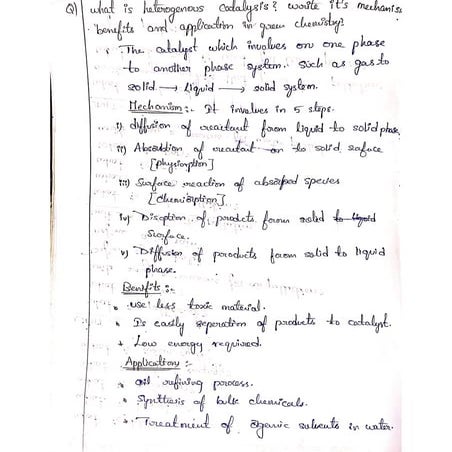 Q) what is heterogenous catalysis? write it's mechanism
benefits and application in green chemistry?
The catalyst which involves on one phase
to another phase system. Such as gas to
solid → Liquid → solid system.
Mechanism:- It involves in 5 steps.
i) diffusion of reactant form liquid to solid phase
ii) Absorbtion of reactant on to solid surface
[physisorption]
iii) Surface reaction of absorbed species
[chemisorption]
iv) Disoption of products form solid to liquid
Surface.
v) Diffusion of products form solid to liquid
phase.
Benifits:-
use less toxic material.
Is easily seperation of products to catalyst.
Low energy required.
Application:-
oil refining process.
Synthesis of bulk chemicals.
Treatment of oganic solvents in water.